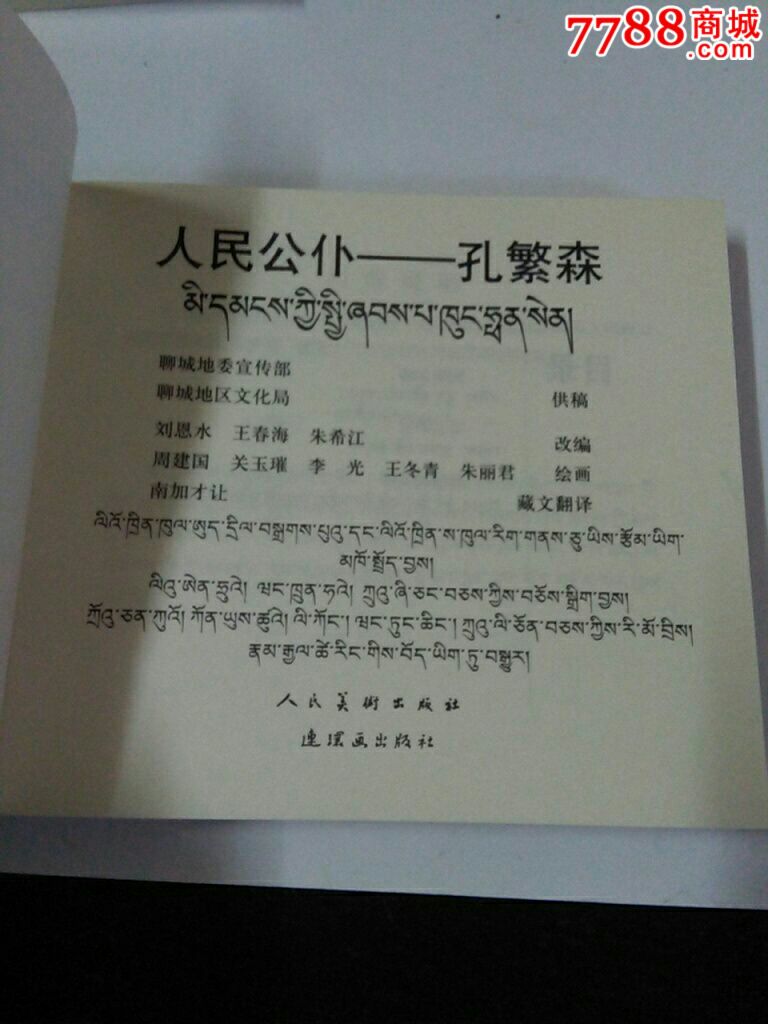 7788商城
.com
人民公仆——孔繁森
མི་དམངས་ཀྱི་སྤྱི་ཞབས་པ་ཁུང་ཧྥན་སེན།
聊城地委宣传部
聊城地区文化局 供稿
刘恩水 王春海 朱希江 改编
周建国 关玉璀 李光 王冬青 朱丽君 绘画
南加才让 藏文翻译
ལིའོ་ཁྲིན་ཁུལ་ཨུད་དྲིལ་བསྒྲགས་པུའུ་དང་ལིའོ་ཁྲིན་ས་ཁུལ་རིག་གནས་ཅུ་ཡིས་རྩོམ་ཡིག་
མཁོ་སྤྲོད་བྱས།
ལིའུ་ཨེན་ཧྲུའེ། ཝང་ཁྲུན་ཧའེ། ཀྲུའུ་ཞི་ཅང་བཅས་ཀྱིས་བཅོས་སྒྲིག་བྱས།
ཀྲོའུ་ཅན་ཀུའོ། ཀོན་ཡུས་ཚུའེ། ལི་ཀོང་། ཝང་ཏུང་ཆིང་། ཀྲུའུ་ལི་ཅོན་བཅས་ཀྱིས་རི་མོ་བྲིས།
རྣམ་རྒྱལ་ཚེ་རིང་གིས་བོད་ཡིག་ཏུ་བསྒྱུར།
人民美术出版社
连环画出版社